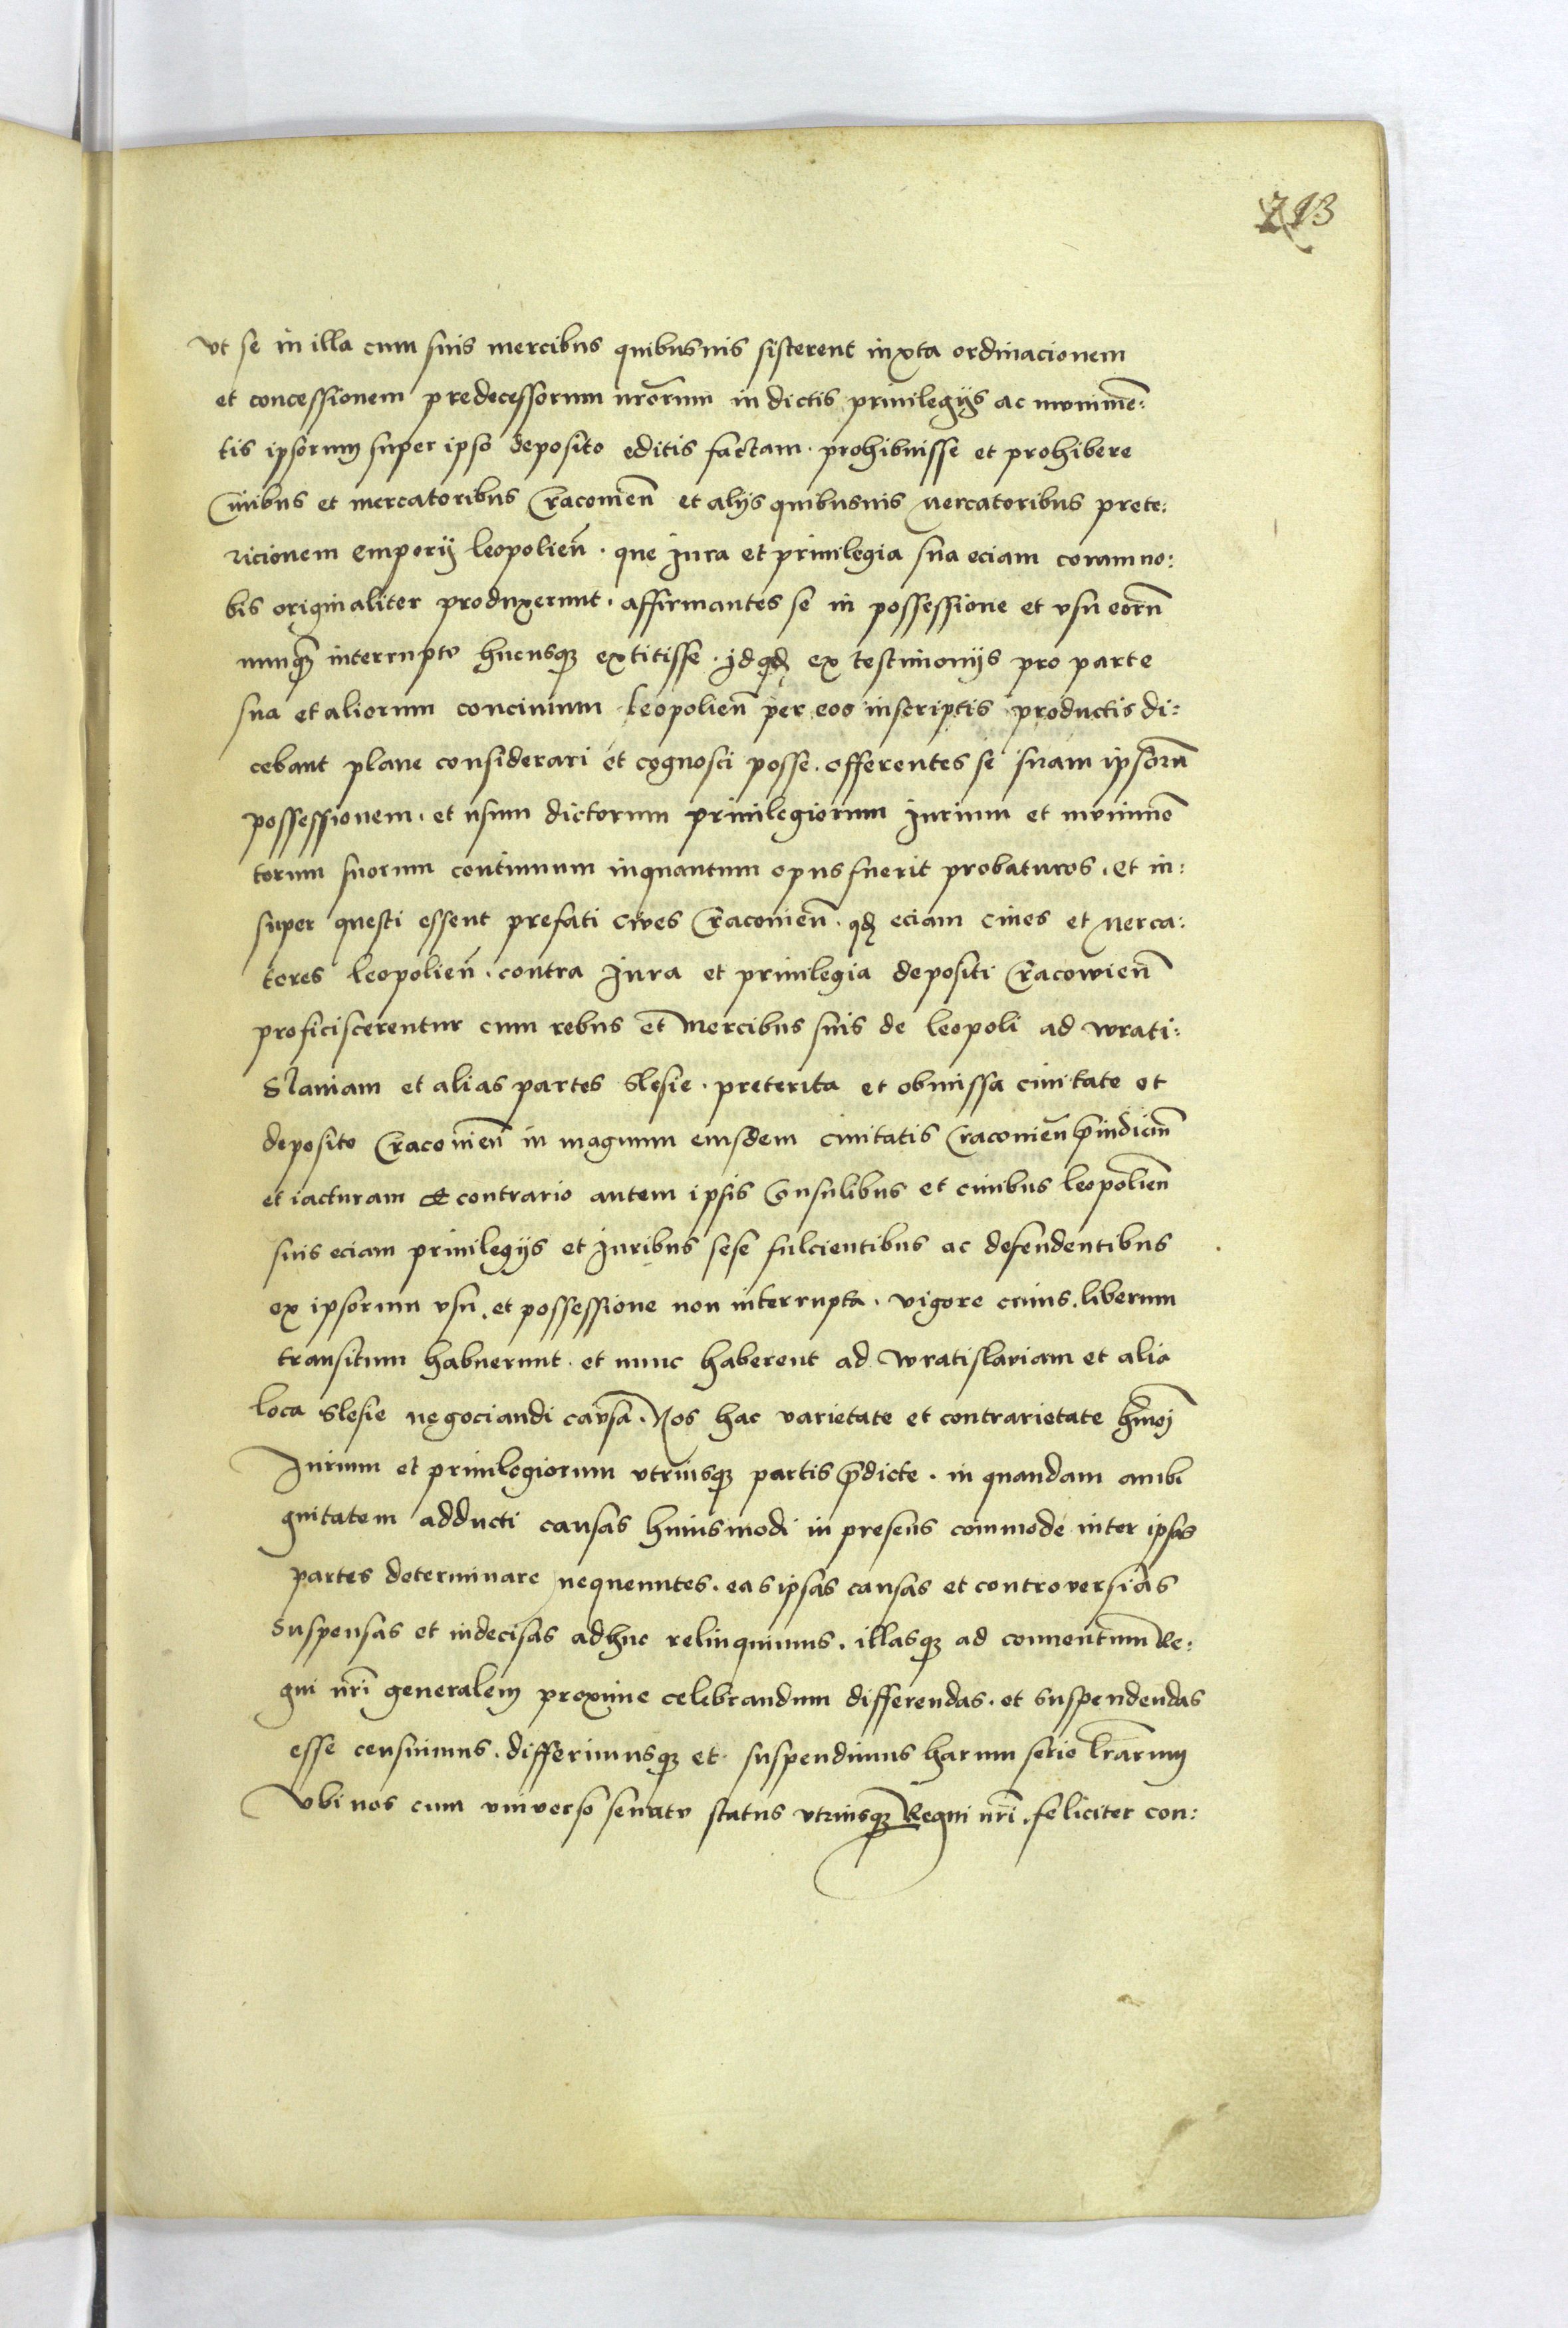 213
vt se in illa cum suis mercibus quibusuis sisterent iuxta ordinacionem
et concessionem predecessorum nrōrum in dictis priuilegijs ac munimē:
tis ipsorum super ipso deposito editis factam. prohibuisse et prohibere
Ciuibus et mercatoribus Cracouien̄ et alijs quibusuis mercatoribus prete:
ricionem emporij leopolien̄. que Jura et priuilegia sua eciam coram no:
bis originaliter produxerunt. affirmantes se in possessione et vsu eorū
nunqȝ interrupto hucusqȝ extitisse. jdqȝ ex testimonijs pro parte
sua et aliorum conciuium leopolien̄ per eos inscriptis productis di:
cebant plane considerari et cognosci posse. offerentes se suam ipsorū
possessionem. et usum dictorum priuilegiorum Jurium et munimē
torum suorum continuum inquantum opus fuerit probaturos. et in:
super questi essent prefati ciues Cracouien̄. qȝ eciam ciues et merca:
tores leopolien̄. contra Jura et priuilegia depositi Cracowien̄
proficiscerentur cum rebus et mercibus suis de leopoli ad wrati:
slauiam et alias partes slesie. preterita et obmissa ciuitate et
deposito Cracouien̄ in magnum eiusdem ciuitatis Cracouien̄ p̄iudiciū
et iacturam E contrario autem ipsis Consulibus et ciuibus leopolien̄
suis eciam priuilegijs et Juribus sese fulcientibus ac defendentibus
ex ipsorum vsu. et possessione non interrupta. vigore cuius. liberum
transitum habuerunt. et nunc haberent ad wratislauiam et alia
loca slesie negociandi causa. Nos hac varietate et contrarietate hmōi
Jurium et priuilegiorum vtriusqȝ partis p̄dicte. in quandam ambi
guitatem adducti causas huiusmodi in presens commode inter ipsas
partes determinare nequeuntes. eas ipsas causas et controuersias
suspensas et indecisas adhuc relinquimus. illasqȝ ad conuentum Re:
gni nrī generalem proxime celebrandum differendas. et suspendendas
esse censuimus. differimusqȝ et suspendimus harum serie lrārum
Vbi nos cum vniuerso senatu status vtriusqȝ Regni nrī. feliciter con: